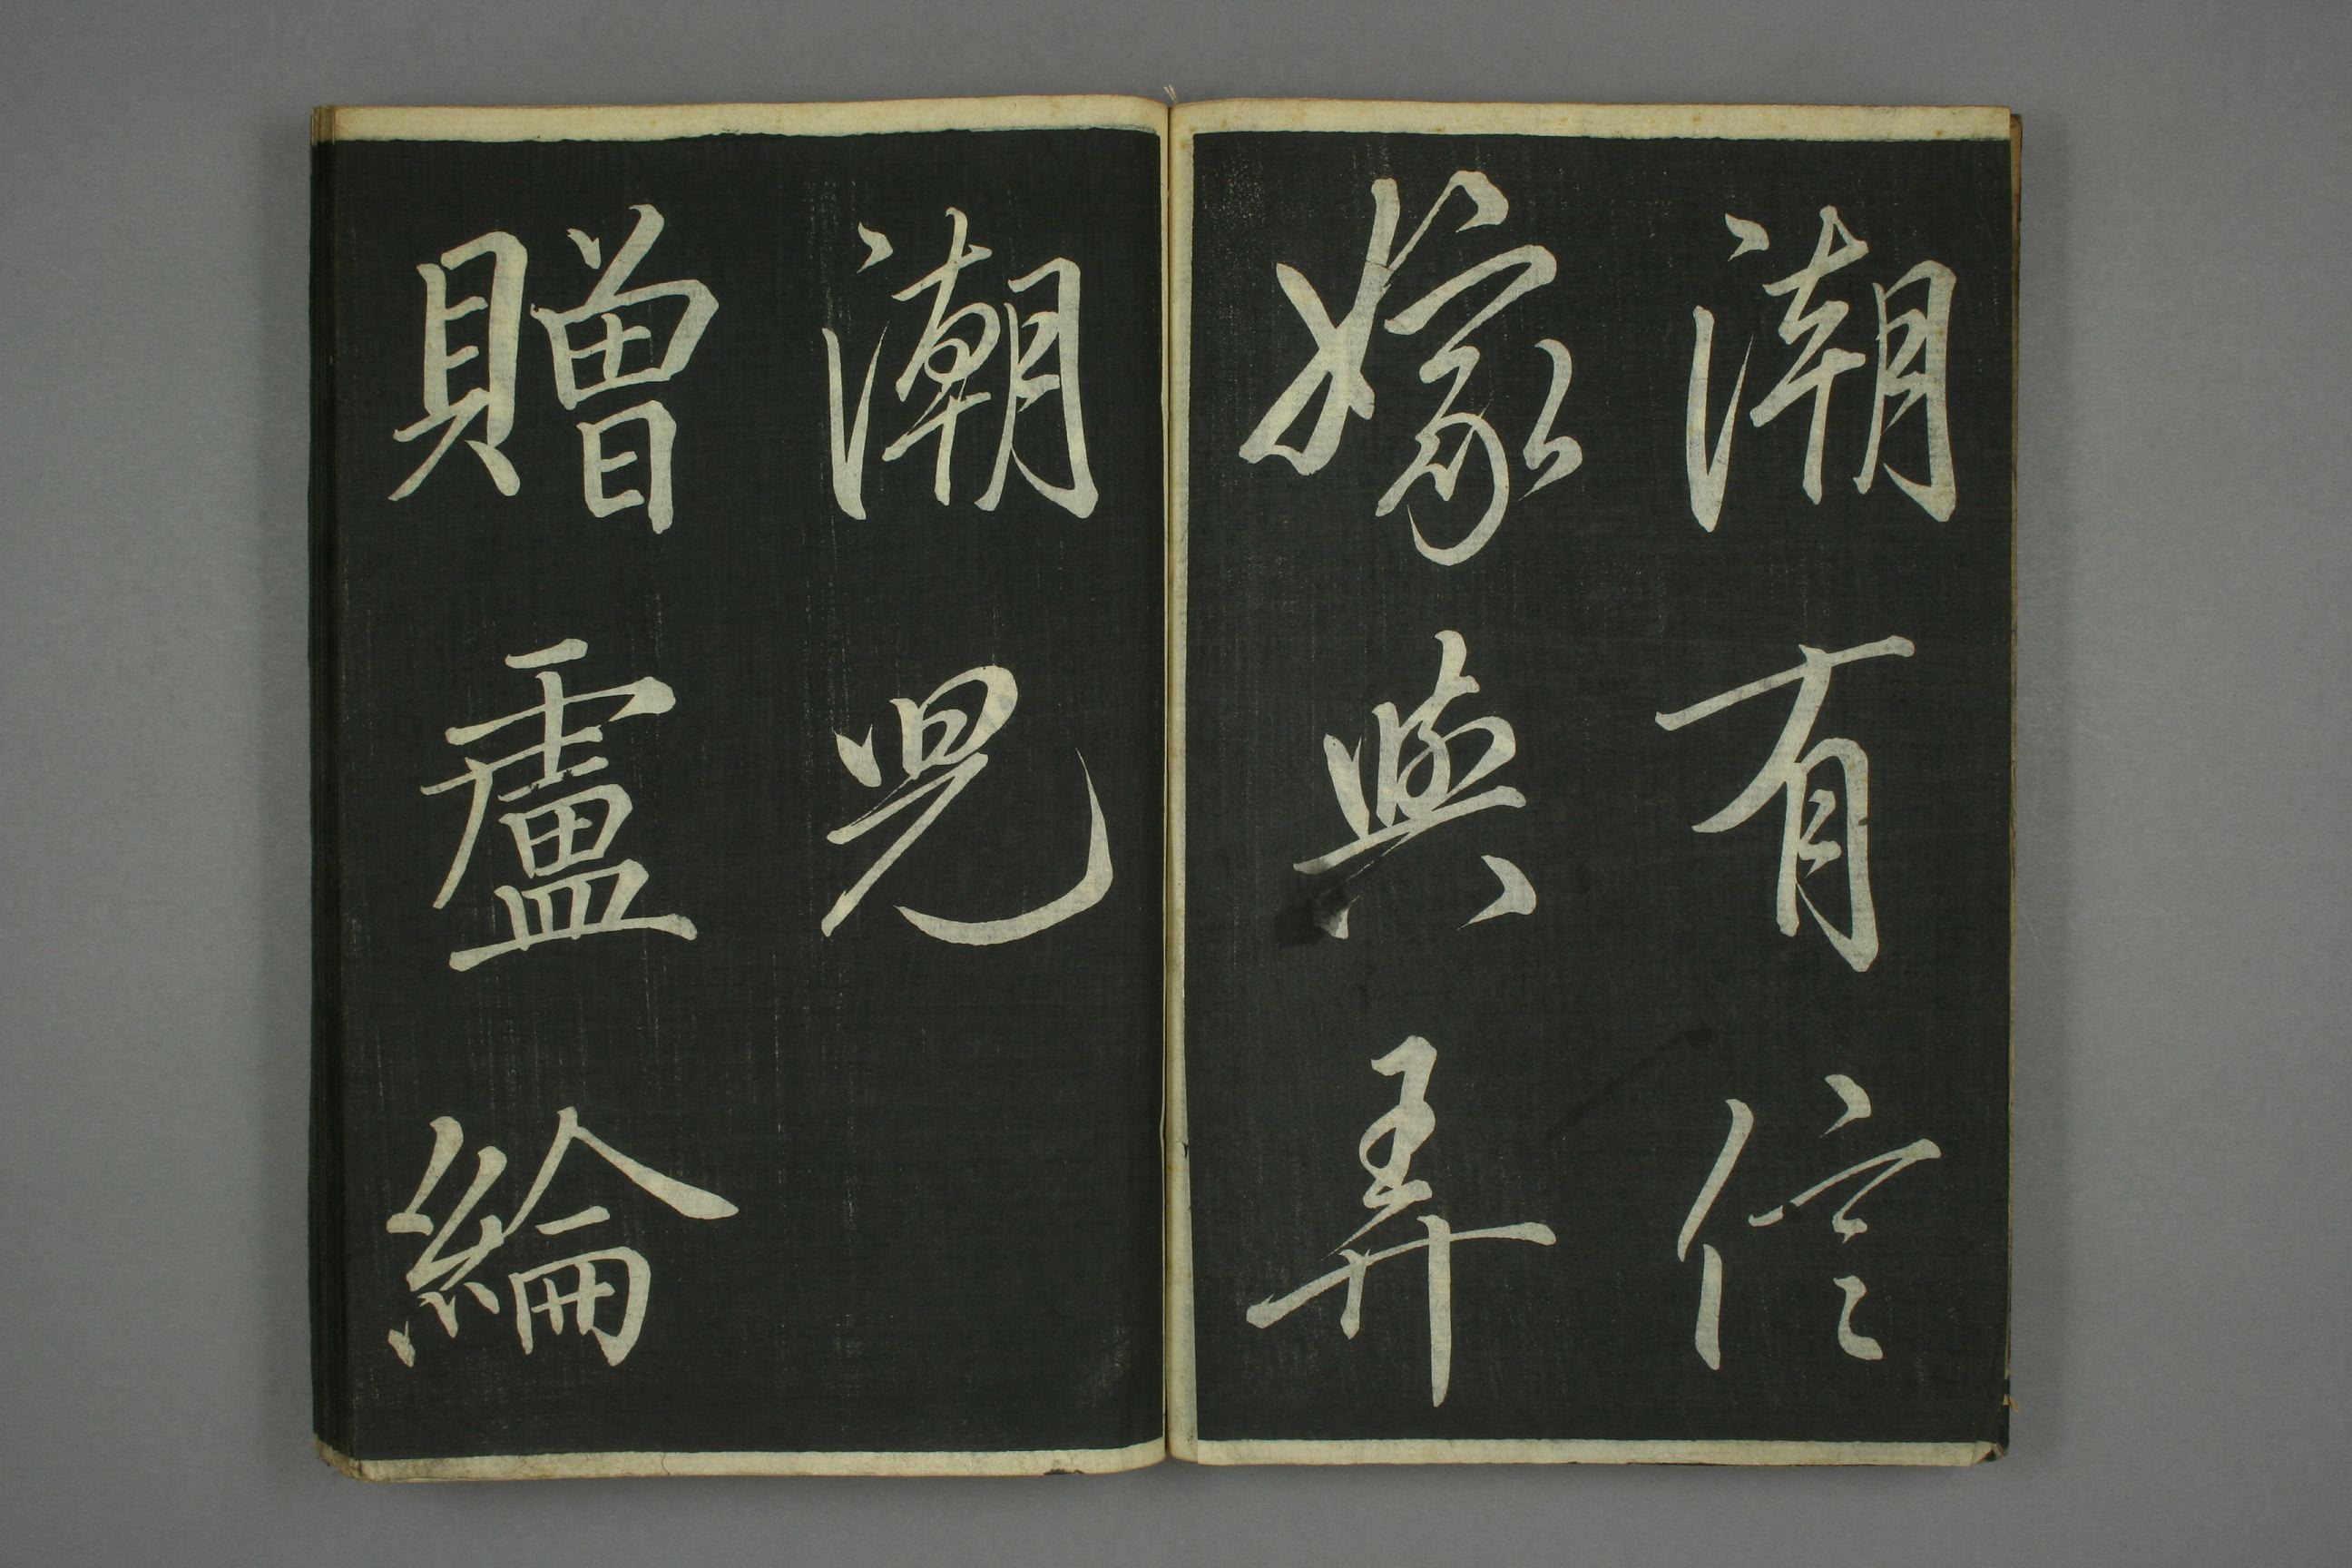 潮有信
嫁與弄
潮児
贈盧綸